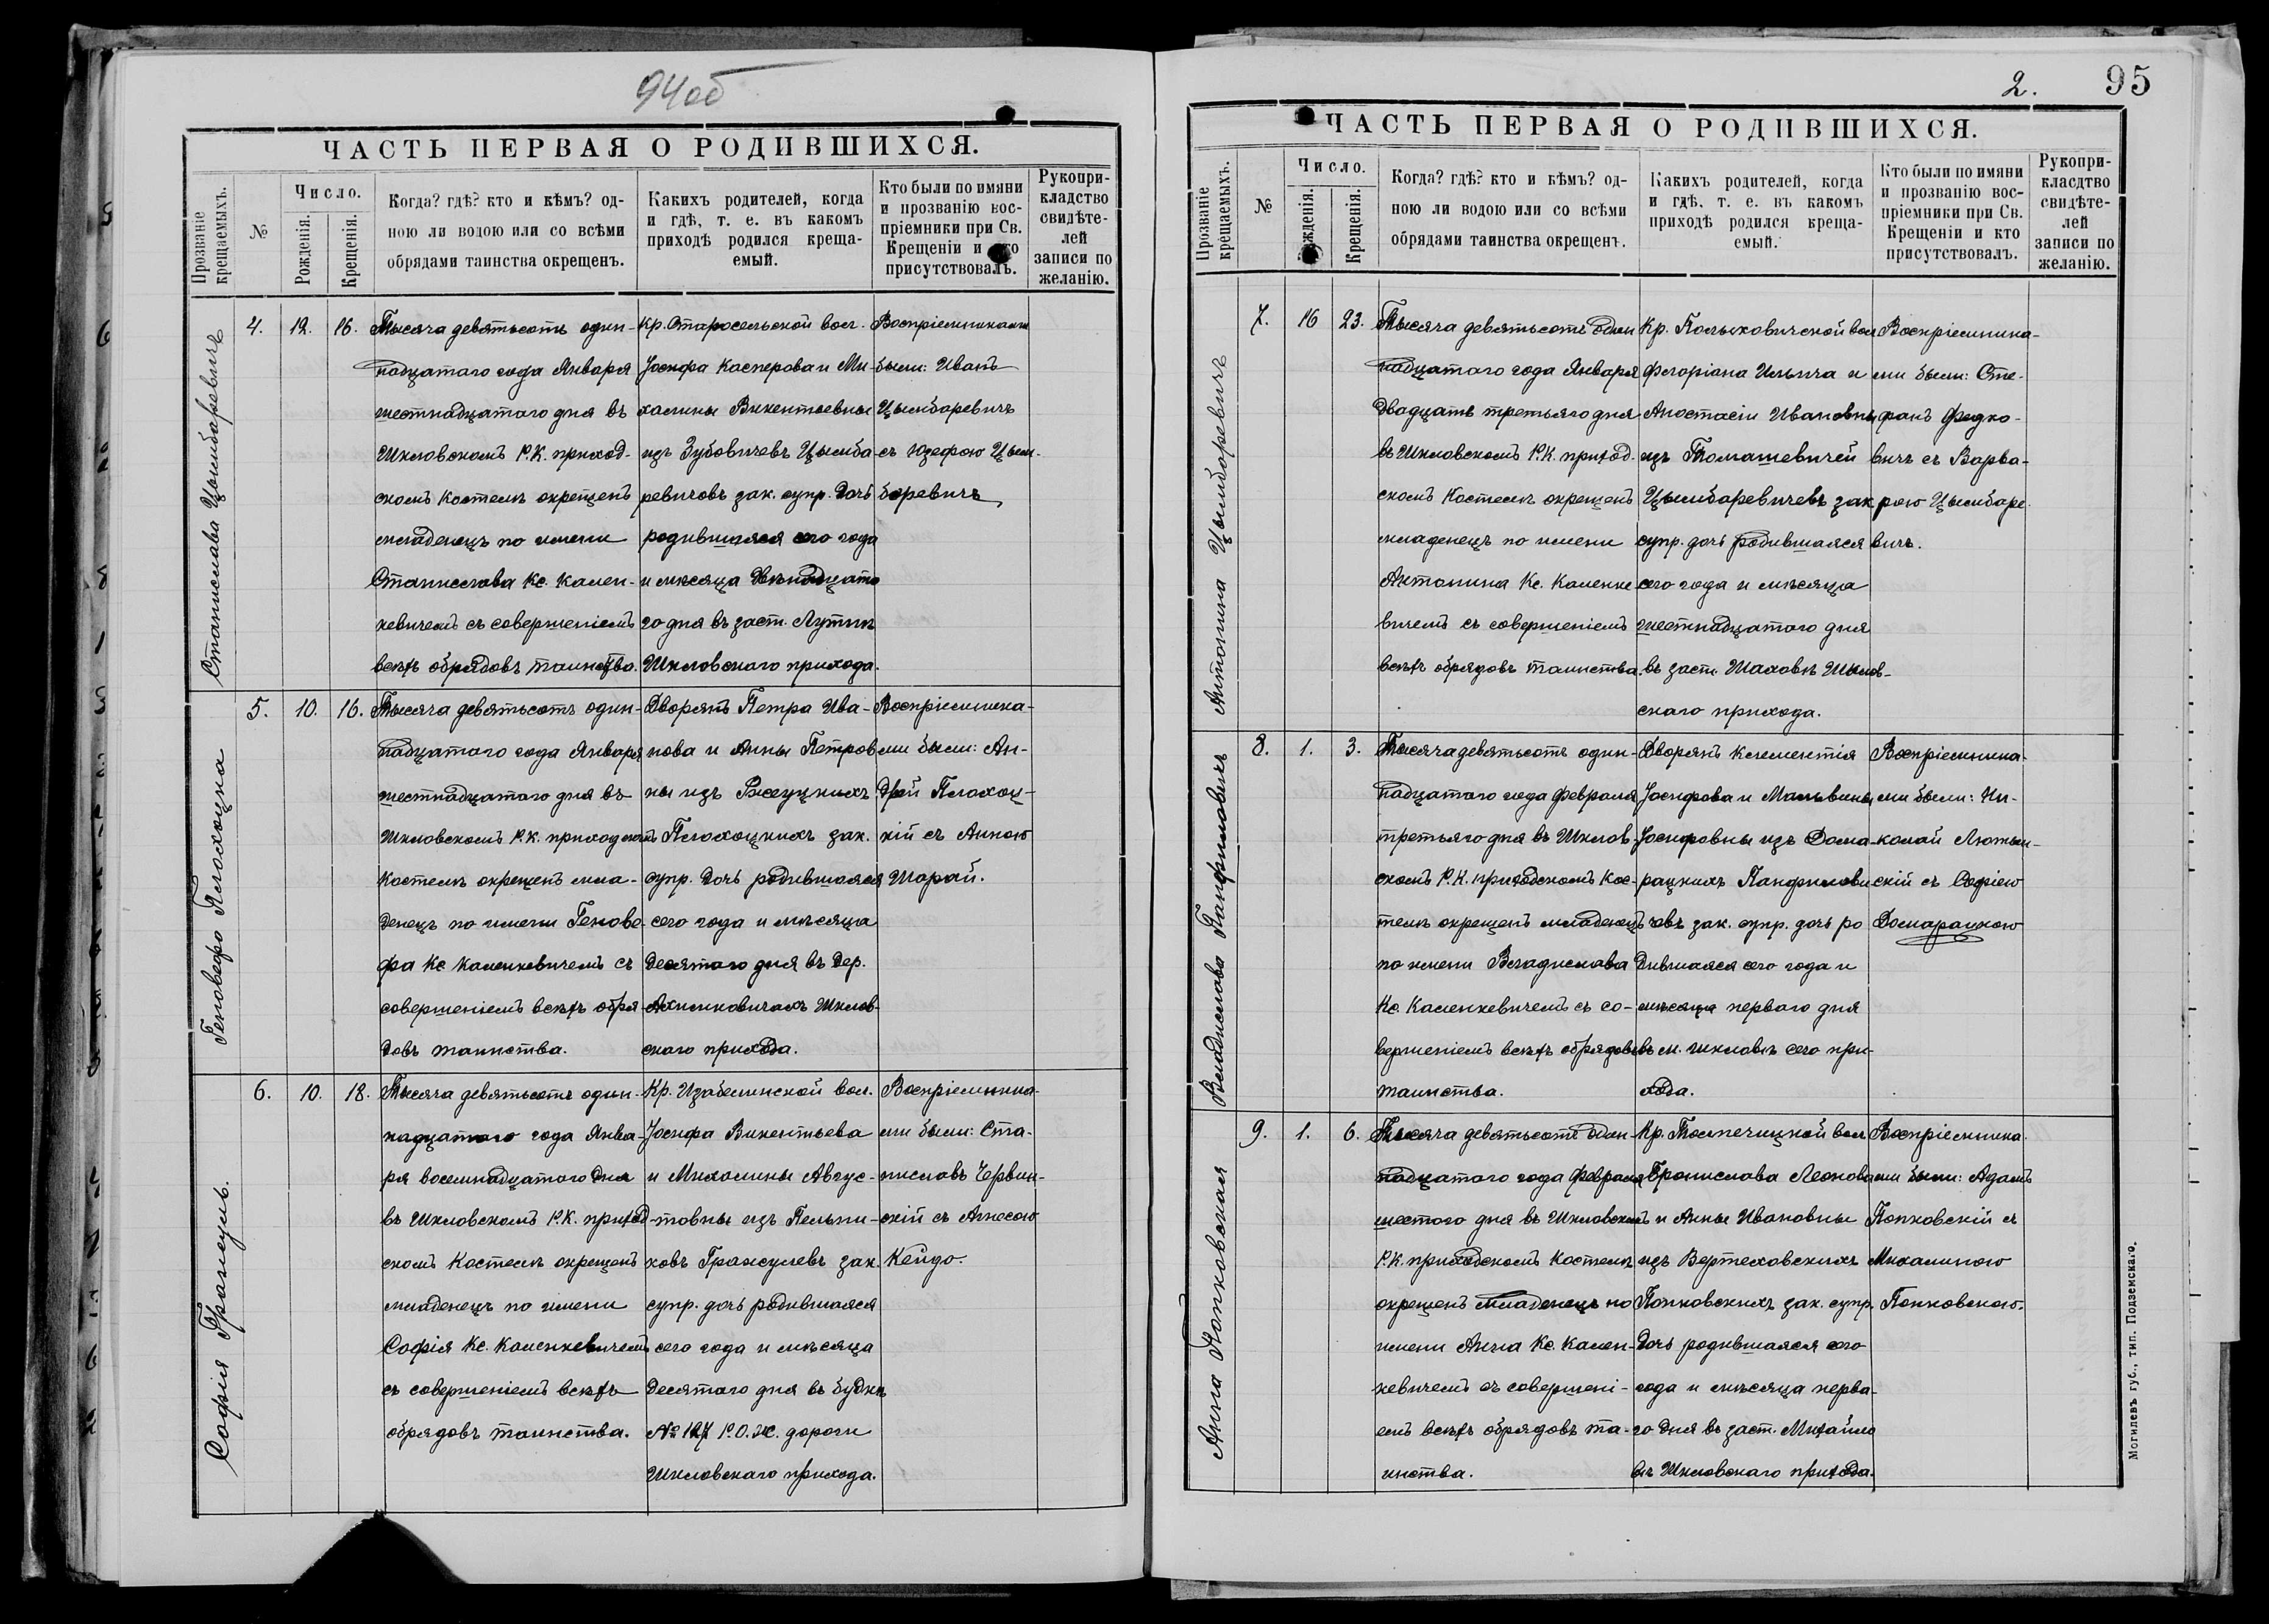 94об
ЧАСТЬ ПЕРВАЯ О РОДИВШИХСЯ.
Прозваніе крещаемыхъ.
№
Число.
Рожденія.
Крещенія.
Когда? гдѣ? кто и кѣмъ? од-
ною ли водою или со всѣми
обрядами таинства окрещенъ.
Какихъ родителей, когда
и гдѣ, т. е. въ какомъ
приходѣ родился креща-
емый.
Кто были по имяни
и прозванію вос-
пріемники при Св.
Крещеніи и кто
присутствовалъ.
Рукопри-
кладство
свидѣте-
лей
записи по
желанію.
Станислава Цымбаревичъ
4.
12.
16.
Тысяча девятьсотъ один-
надцатаго года Января
шестнадцатаго дня въ
Шкловскомъ Р.К. приход-
скомъ костелѣ окрещенъ
младенецъ по имени
Станислава Кс. Камен-
кевичемъ съ совершеніемъ
всѣхъ обрядовъ таинства.
Кр. Старосельской вол.
Іосифа Касперова и Ми-
халины Викентьевны
изъ Зубовичевъ Цымба-
ревичовъ зак. супр. дочь
родившаяся сего года
и мѣсяца двѣнадцата
го дня въ заст. Лутнѣ
Шкловскаго прихода.
Воспріемниками
были: Иванъ
Цымбаревичъ
съ Юзефою Цым-
баревичъ
Геновефа Плохоцка
5.
10.
16.
Тысяча девятьсотъ один-
надцатаго года Января
шестнадцатаго дня въ
Шкловскомъ Р.К. приходскомъ
костелѣ окрещенъ мла-
денецъ по имени Генове
фа Кс Каменкевичемъ съ
совершеніемъ всѣхъ обря-
довъ таинства.
Дворянъ Петра Ива-
нова и Анны Петров
ны изъ Ржецкихъ
Плохоцкихъ зак.
супр. дочь родившаяся
сего года и мѣсяца
десятаго дня въ дер.
Ахимковичахъ Шклов-
скаго прихода.
Воспріемника-
ми были: Ан-
дрей Плохоц-
кій съ Анною
Шарай.
Софія Гранцуль.
6.
10.
18.
Тысяча девятьсотъ один-
надцатаго года Янва-
ря восемнадцатаго дня
въ Шкловскомъ Р.К. приход
скомъ костелѣ окрещенъ
младенецъ по имени
Софія Кс. Каменкевичемъ
съ совершеніемъ всѣхъ
обрядовъ таинства.
Кр. Изабелинской вол.
Іосифа Викентьева
и Михалины Авгус-
товны изъ
зак.
супр. дочь родившаяся
сего года и мѣсяца
десятаго дня въ будкѣ
№ 127 Р.О.ж. дороги
Шкловскаго прихода.
Воспріемника-
ми были: Ста-
ниславъ Червин-
скій съ Агнесою
Кейдо.
2. 95
ЧАСТЬ ПЕРВАЯ О РОДИВШИХСЯ.
Прозваніе крещаемыхъ.
№
Число.
Рожденія.
Крещенія.
Когда? гдѣ? кто и кѣмъ? од-
ною ли водою или со всѣми
обрядами таинства окрещенъ.
Какихъ родителей, когда
и гдѣ, т. е. въ какомъ
приходѣ родился креща-
емый.
Кто были по имяни
и прозванію вос-
пріемники при Св.
Крещеніи и кто
присутствовалъ.
Рукопри-
класдтво
свидѣте-
лей
записи по
желанію.
Антонина Цымбаревичъ
7.
16
23.
Тысяча девятьсотъ один
надцатаго года Января
двадцать третьяго дня
въ Шкловскомъ Р.К. приход.
скомъ костелѣ окрещенъ
младенецъ по имени
Антонина Кс. Каменке
вичемъ съ совершеніемъ
всѣхъ обрядовъ таинства.
Кр. Полыковичской вол
Флоріана Ильича и
Анастасіи Ивановны
изъ Томашевичей
Цымбаревичевъ зак
супр. дочь родившаяся
сего года и мѣсяца
шестнадцатаго дня
въ заст. Шаховѣ Шклов-
скаго прихода.
Воспріемника-
ми были: Сте-
фанъ Федко-
вичъ съ Варва-
рою Цымбаре
вичъ.
Владислава Панфиловичъ
8.
1.
3.
Тысяча девятьсотъ один-
надцатаго года февраля
третьяго дня въ Шклов-
скомъ Р.К. приходскомъ кос-
телѣ окрещенъ младенецъ
по имени Владислава
Кс. Каменкевичемъ съ со-
вершеніемъ всѣхъ обрядовъ
таинства.
Дворянъ Клементія
Іосифова и Мальвины
Іосифовны изъ Дома-
рацкихъ Панфилови
човъ зак. супр. дочь ро
дившаяся сего года и
мѣсяца перваго дня
въ м. Шкловѣ сего при-
хода.
Воспріемника-
ми были: Ни-
колай Лютын-
скій съ Софіею
Домарацкою
Анна Попковская
9.
1.
6.
Тысяча девятьсотъ один-
надцатаго года февраля
шестого дня въ Шкловскомъ
Р.К. приходскомъ костелѣ
окрещенъ младенецъ по
имени Анна Кс. Камен-
кевичемъ съ совершені-
емъ всѣхъ обрядовъ та-
инства.
Кр. вол
Бронислава Леонова
и Анны Ивановны
изъ Вертеховскихъ
Попковскихъ зак. супр.
дочь родившаяся сего
года и мѣсяца перва-
го дня въ заст. Михайло
вѣ Шкловскаго прихода.
Воспріемника
ми были: Адамъ
Попковскій съ
Михалиною
Попковскою.
Могилевъ губ., тип. Подземскаго.